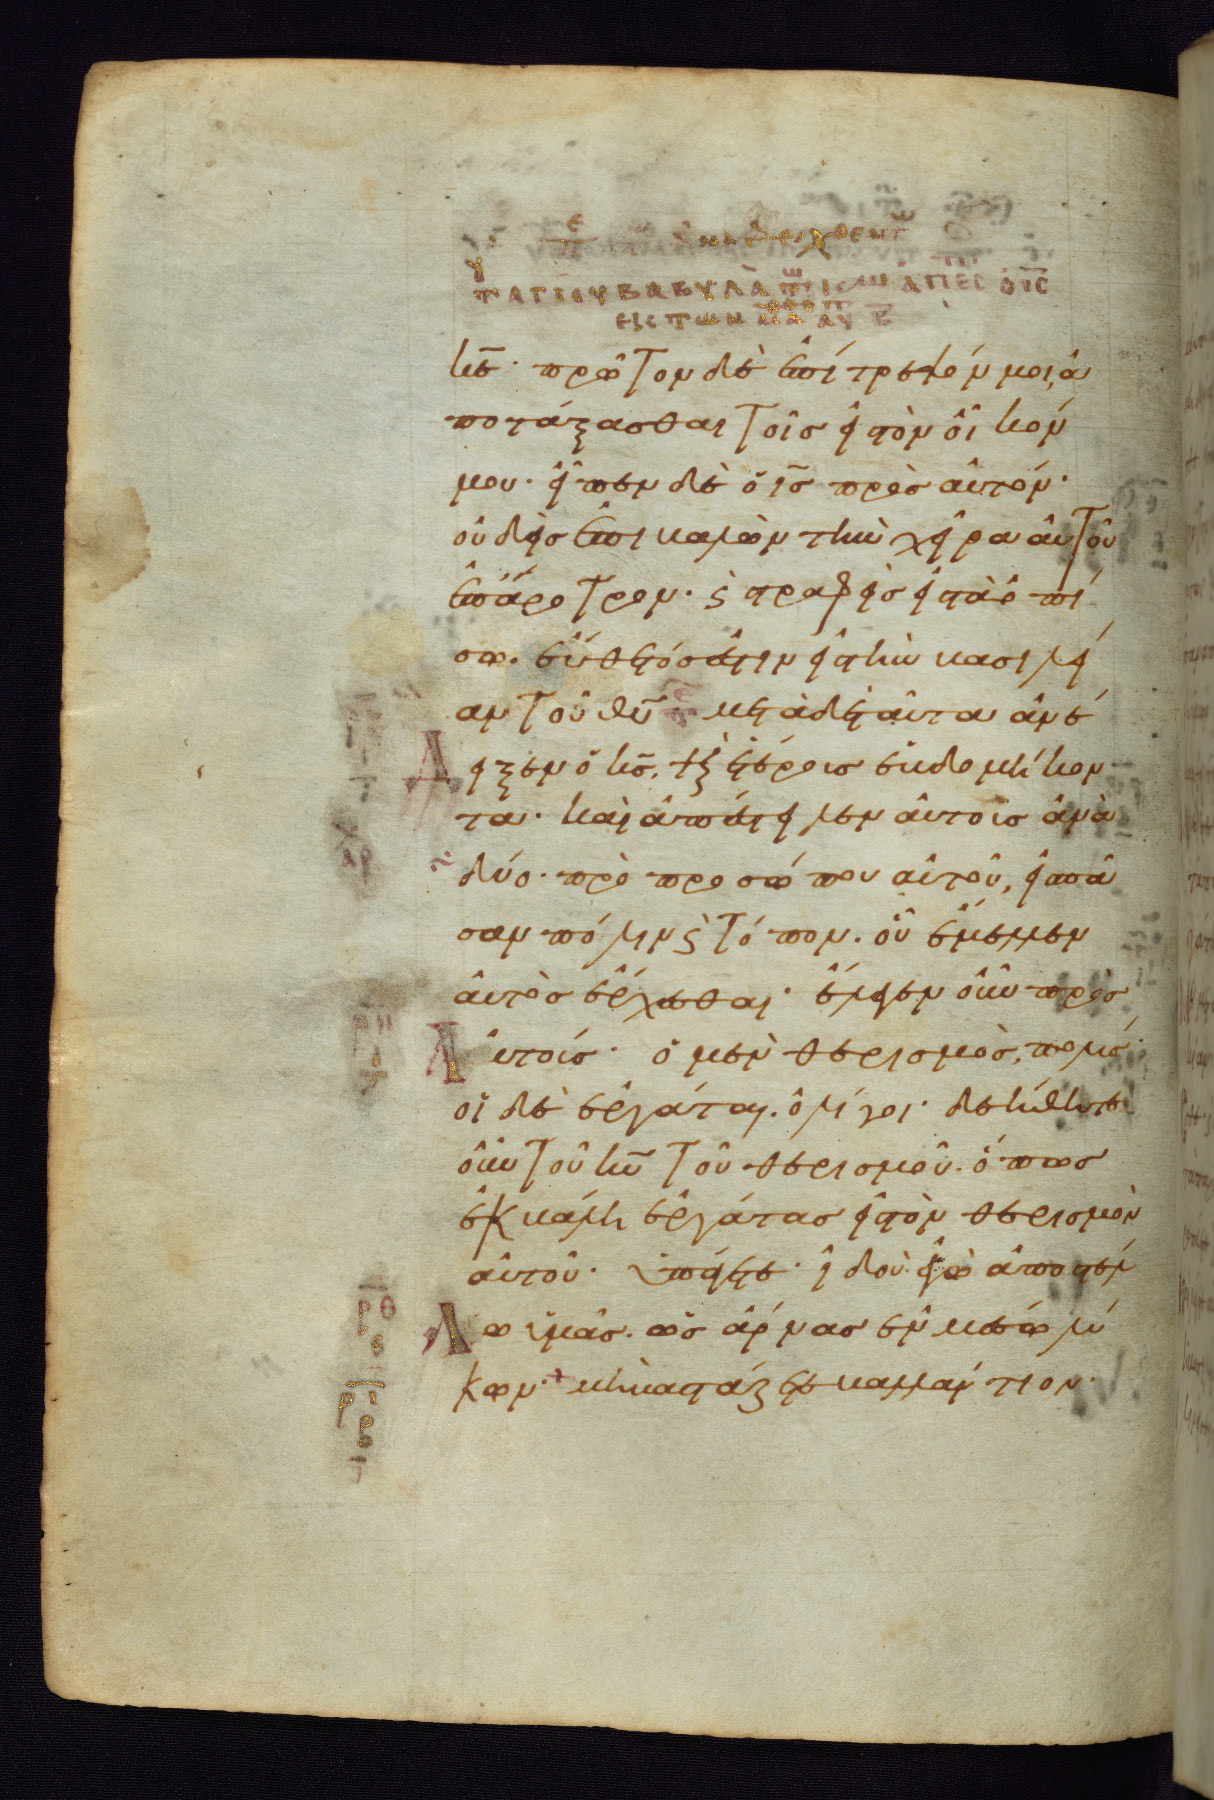 ΤΑΓΙΟΥ ΒΑΒΥΛΑ
κε̅· πρῶτον δὲ ἐπίτρεψόν μοι, ἀ
ποτάξασθαι τοῖς εἰς τὸν οἶκόν
μου· εἶπεν δὲ ὁ ις̅ πρὸς αὐτόν·
οὐδεὶς ἐπιβαλὼν τὴν χεῖρα αὐτοῦ
ἐπ' ἄροτρον· ϛ στραφεὶς εἰς τὰ ὀπί
σω. εὔθετός ἐστιν εἰς τὴν βασιλεί
αν τοῦ θυ̅· μετὰ δὲ ταῦτα ἀνέ
δειξεν ὁ κς̅. καὶ ἑτέρους ἑβδομήκον
τα· καὶ ἀπέστειλεν αὐτοὺς ἀνὰ
δύο· πρὸ προσώπου αὐτοῦ, εἰς πᾶ
σαν πόλιν ϛ τόπον. οὗ ἔμελλεν
αὐτὸς ἔρχεσθαι· ἔλεγεν οὖν πρὸς
αὐτούς· ὁ μὲν θερισμὸς, πολύς·
οἱ δὲ ἐργάται. ὀλίγοι· δεήθητε
οὖν τοῦ κυ̅ τοῦ θερισμοῦ. ὅπως
ἐκβάλῃ ἐργάτας εἰς τὸν θερισμὸν
αὐτοῦ· ὑπάγετε· ἰδοὺ ἐγὼ ἀποστέλ
ρθ
λω ὑμᾶς. ὡς ἄρνας ἐν μέσῳ λύ
κων· μὴ βαστάζετε βαλλάντιον·